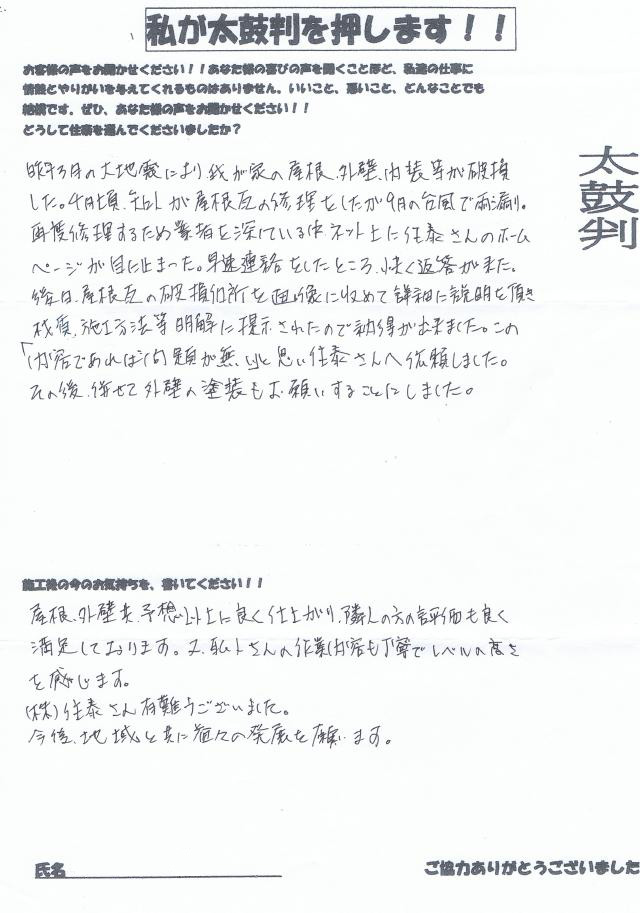 私が太鼓判を押します！！
お客様の声をお聞かせください！！あなた様の喜びの声を聞くことほど、私達の仕事に
情熱とやりがいを与えてくれるものはありません。いいこと、悪いこと、どんなことでも
結構です。ぜひ、あなた様の声をお聞かせください！！
どうして住泰を選んでくださいましたか？
太鼓判
昨年3月の大地震により我が家の屋根、外壁、内装等が破損
した。4月頃、知人が屋根瓦の修理をしたが9月の台風で雨漏り。
再度修理するため業者を探している中ネット上に住泰さんのホーム
ページが目に止まった。早速連絡をしたところ、快く返答が来た。
後日、屋根瓦の破損個所を画像に収めて詳細に説明を頂き
材質、施工方法等明解に提示されたので納得が出来ました。この
内容であれば問題が無いと思い住泰さんへ依頼しました。
その後、併せて外壁の塗装もお願いすることにしました。
施工後の今のお気持ちを、書いてください！！
屋根、外壁共、予想以上に良く仕上がり、隣人の方の評価も良く
満足しております。又、職人さんの作業内容も丁寧でレベルの高さ
を感じます。
(株)住泰さん有難うございました。
今後、地域と共に益々の発展を願います。
氏名
ご協力ありがとうございました